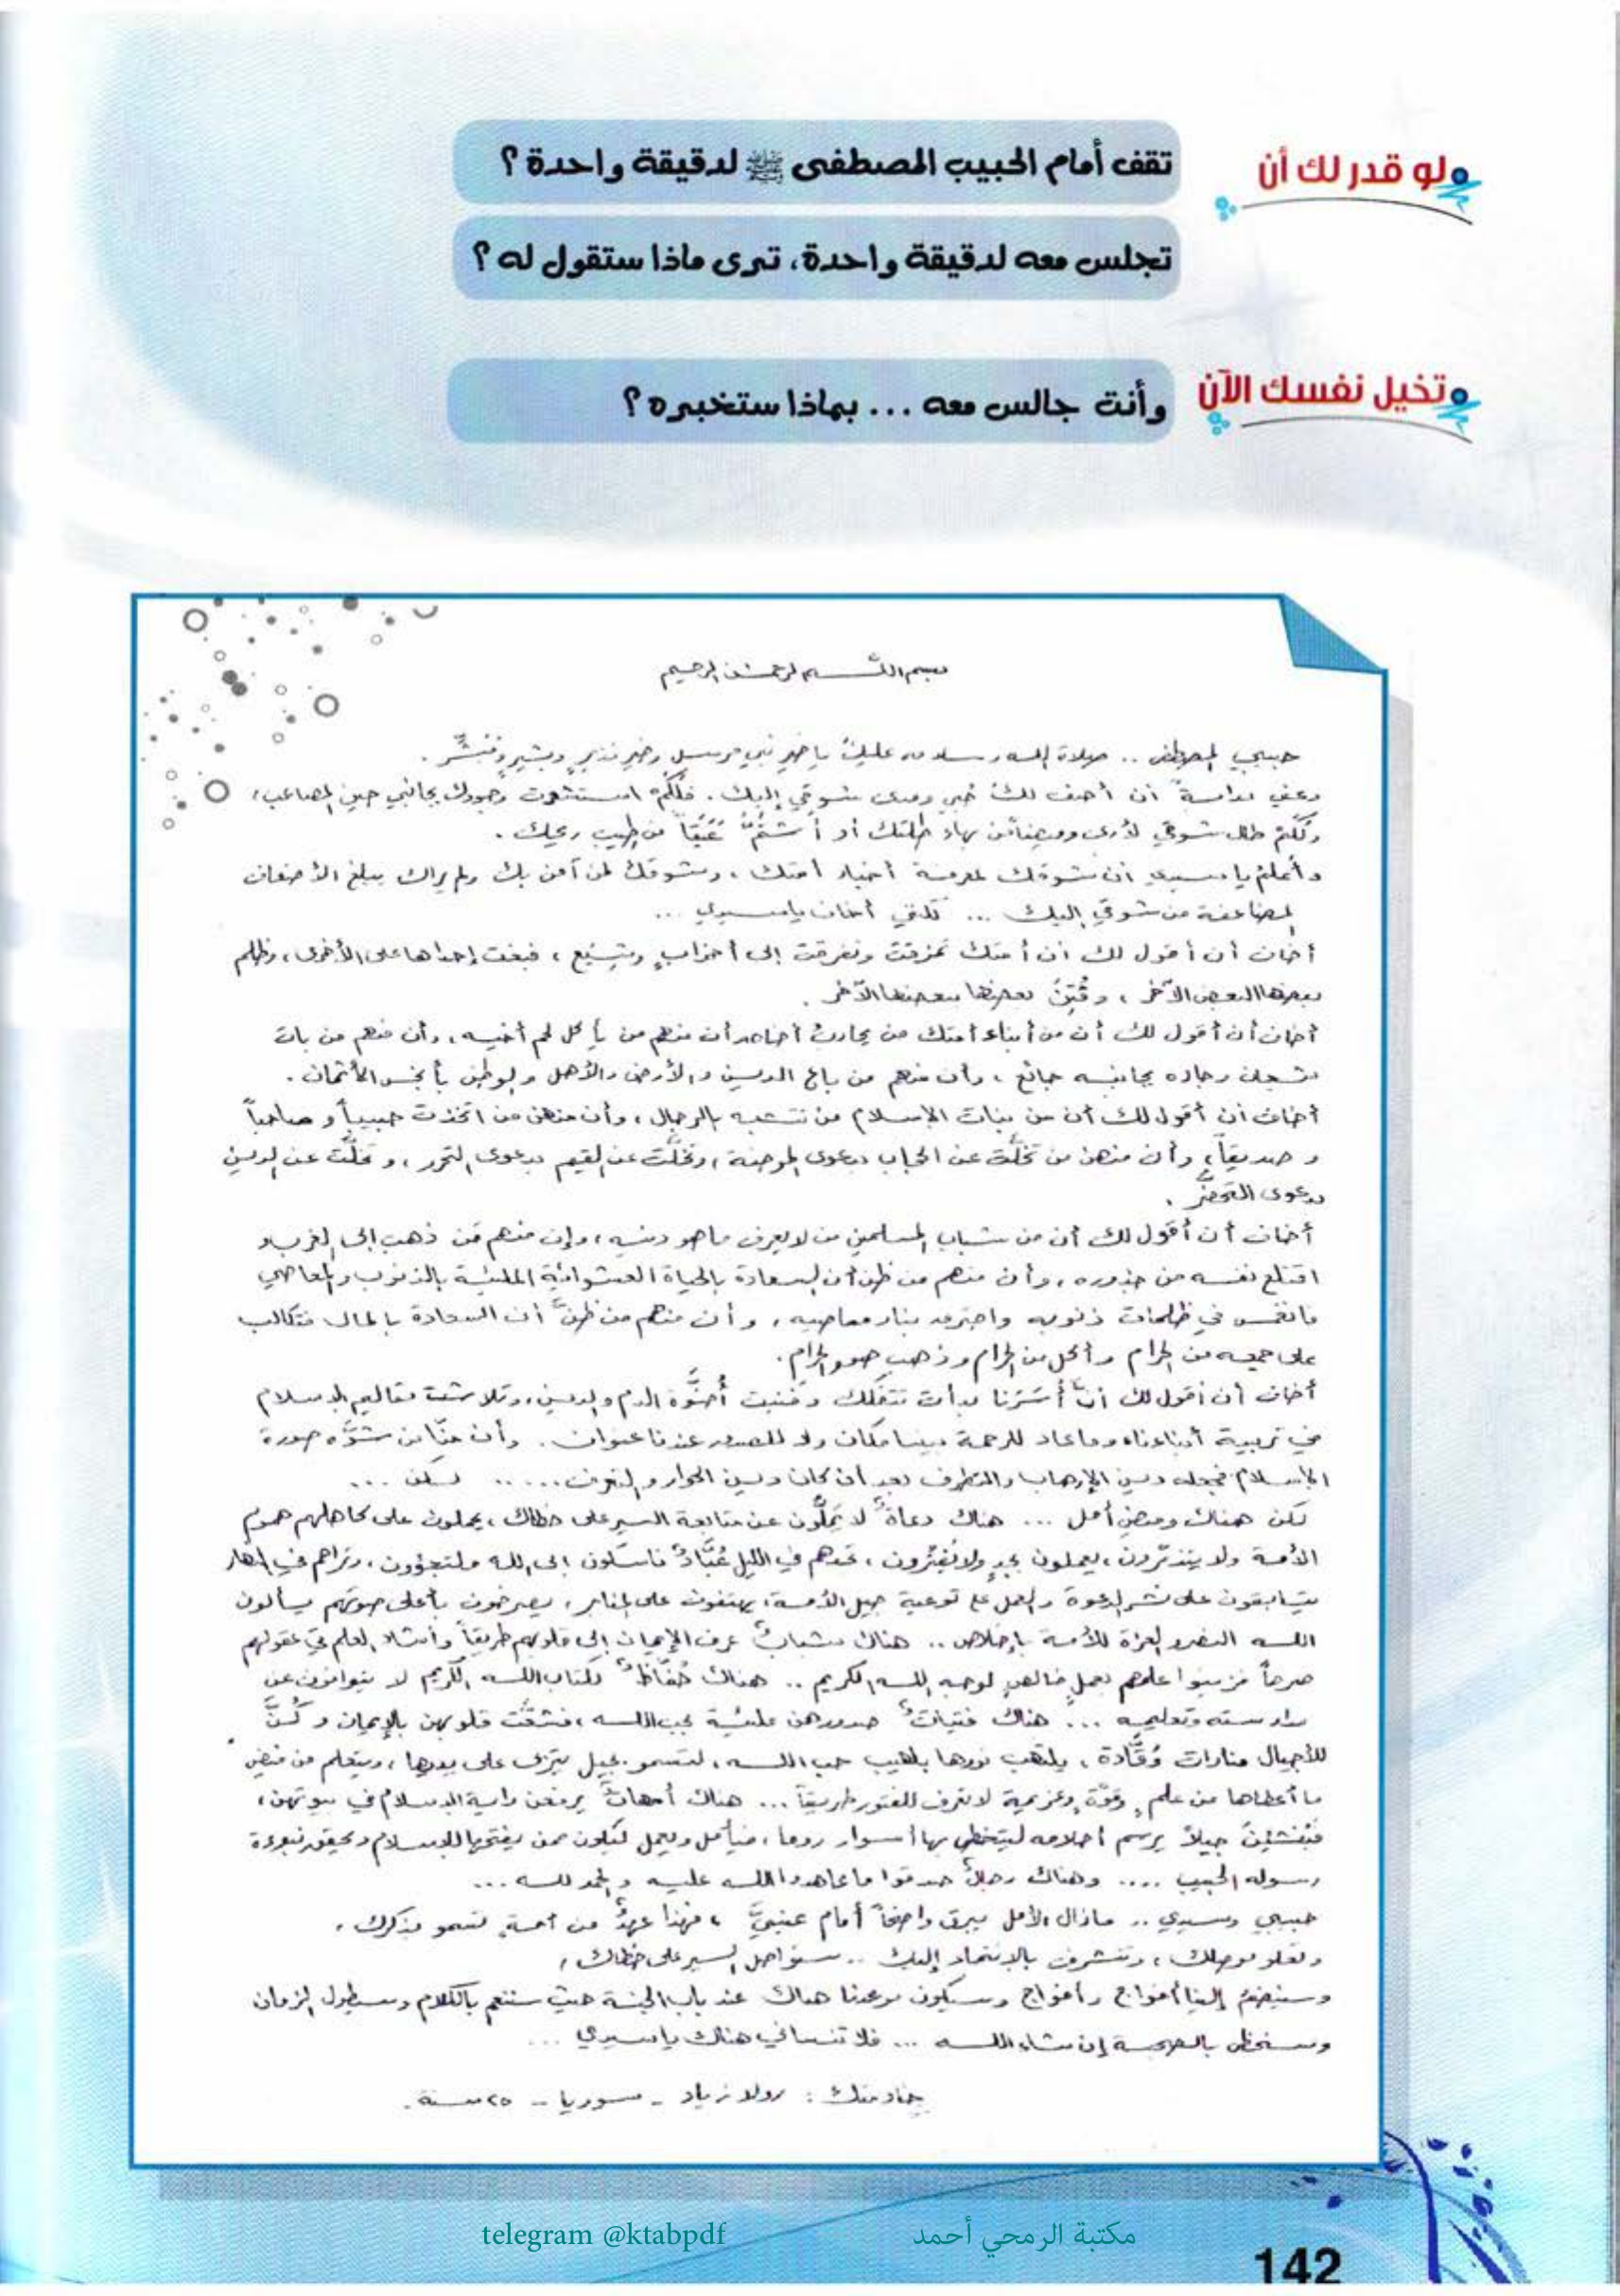 ولو قدر لك أن
تقف أمام الحبيب المصطفى ﷺ لدقيقة واحدة ؟
تجلس معه لدقيقة واحدة، ترى ماذا ستقول له ؟
وتخيل نفسك الآن
وأنت جالس معه ... بماذا ستخبره ؟
بسم الله الرحمن الرحيم
حبيبي المصطفى .. صلاة الله وسلامه عليك يا خير نبي مرسل وخير نذير وبشير ومبشر .
دعني بداية أن أصف لك حبي ومدى شوقي إليك . فلكم استشعرت وجودك بجانبي حين المصاعب،
ولكم طال شوقي لأرى وميضاً من بهاء طلتك أو أشتمُّ عبقاً من طيب ريحك .
وأعلم يا سيدي أن شوقك لمعرفة أخبار أمتك ، وشوقك لمن آمن بك ولم يراك يبلغ الأضعاف
المضاعفة من شوقي إليك ... لكني أخاف يا سيدي ...
أخاف أن أقول لك أن أمتك تمزقت وتفرقت إلى أحزابٍ وشِيَع ، فبغت إحداها على الأخرى ، وظلم
بعضها البعض الآخر ، وفُتِنَ بعضها ببعضها الآخر .
أخاف أن أقول لك أن من أبناء أمتك من يحارب أخاه وأن منهم من يأكل لحم أخيه ، وأن منهم من بات
شبعان وجاره بجانبه جائع ، وأن منهم من باع الدين والأرض والأهل والوطن بأبخس الأثمان .
أخاف أن أقول لك أن من بنات الإسلام من تتشبه بالرجال ، وأن منهن من اتخذت حبيباً وصاحباً
وصديقاً، وأن منهن من تخلَّت عن الحجاب بدعوى الموضة ، وتخلَّت عن القيم بدعوى التحرر ، وتخلَّت عن الدين
بدعوى التحضُّر .
أخاف أن أقول لك أن من شباب المسلمين من لا يعرف ما هو دينه ، وإن منهم مَن ذهب إلى الغرب و
اقتلع نفسه من جذوره ، وأن منهم من ظن أن السعادة بالحياة العشوائية المليئة بالذنوب والمعاصي
فانغمس في ظلمات ذنوبه واحترق بنار معاصيه ، وأن منهم من ظنَّ أن السعادة بالمال فتكالب
على جمعه من الحرام وأكل من الحرام وذهب صوب الحرام.
أخاف أن أقول لك أنَّ أُسَرَنا بدأت تتفكك وفنيت أخوَّة الدم والدين، وتلاشت تعاليم الإسلام
في تربية أبناءنا، وما عاد للرحمة بيننا مكان ولا للصبر عندنا عنوان . وأن منّا من شوَّه صورة
الإسلام فجعله دين الإرهاب والتطرف بعد أن كان دين الحوار والتعرف ..... لكن ...
لكن هناك وميض أمل ... هناك دعاةٌ لا يَملُّون عن متابعة السير على خطاك ، يحملون على كاهلهم هموم
الأمة ولا يتذمّرون ، يعملون بجدٍ ولا يَفتُرون ، تجدهم في الليل عُبَّادٌ ناسكون إلى الله ملتجؤون ، وتراهم في النهار
يتسابقون على نشر الدعوة والعمل على توعية جيل الأمة، يهتفون على المنابر ، يصرخون بأعلى صوتهم يسألون
الله النصر والعزة للأمة بإخلاص .. هناك شبابٌ عرف الإيمان إلى قلوبهم طريقاً وأنشأ العلم في عقولهم
صرحاً فزينوا علمهم بعملٍ خالصٍ لوجه الله الكريم .. هناك حُفّاظٌ لكتاب الله الكريم لا يتوانون عن
مدارسته وتعليمه ... هناك فتياتٌ صدورهن مليئة بحب الله ، فشقَّت قلوبهن بالإيمان وكُنَّ
للأجيال منارات وُقَّادة ، يلتهب نورها بلهيب حب الله ، لتسمو بجيل يتربى على يديها ، ويتعلم من فيض
ما أعطاها من علمٍ وقوَّةٍ وعزيمة لا تعرف للفتور طريقاً ... هناك أمهاتٌ يرفعن راية الإسلام في بيوتهن ،
فيُنشئنَ جيلاً يرسم أحلامه ليتخطى بها أسوار روما ، فيأمل ويعمل ليكون ممن يفتحها للإسلام ويحقق نبوءة
رسوله الحبيب .... وهناك رجالٌ صدقوا ما عاهدوا الله عليه والحمد لله ...
حبيبي وسيدي .. مازال الأمل يبرق واضحاً أمام عينيَّ ، فهذا عهدٌ من أمةٍ تسمو بذكرك ،
وتعلو بوصلك ، وتتشرف بالانتماء إليك .. سنواصل السير على خطاك ،
وسينضم إلينا أفواج وأفواج وسيكون موعدنا هناك عند باب الجنة حيث سننعم بالكلام وسيطول الزمان
وسنحظى بالصحبة إن شاء الله ... فلا تنساني هناك يا سيدي ...
خادمتك : رولا زياد - سوريا - ٢٥ سنة .
telegram @ktabpdf
مكتبة الرمحي أحمد
142